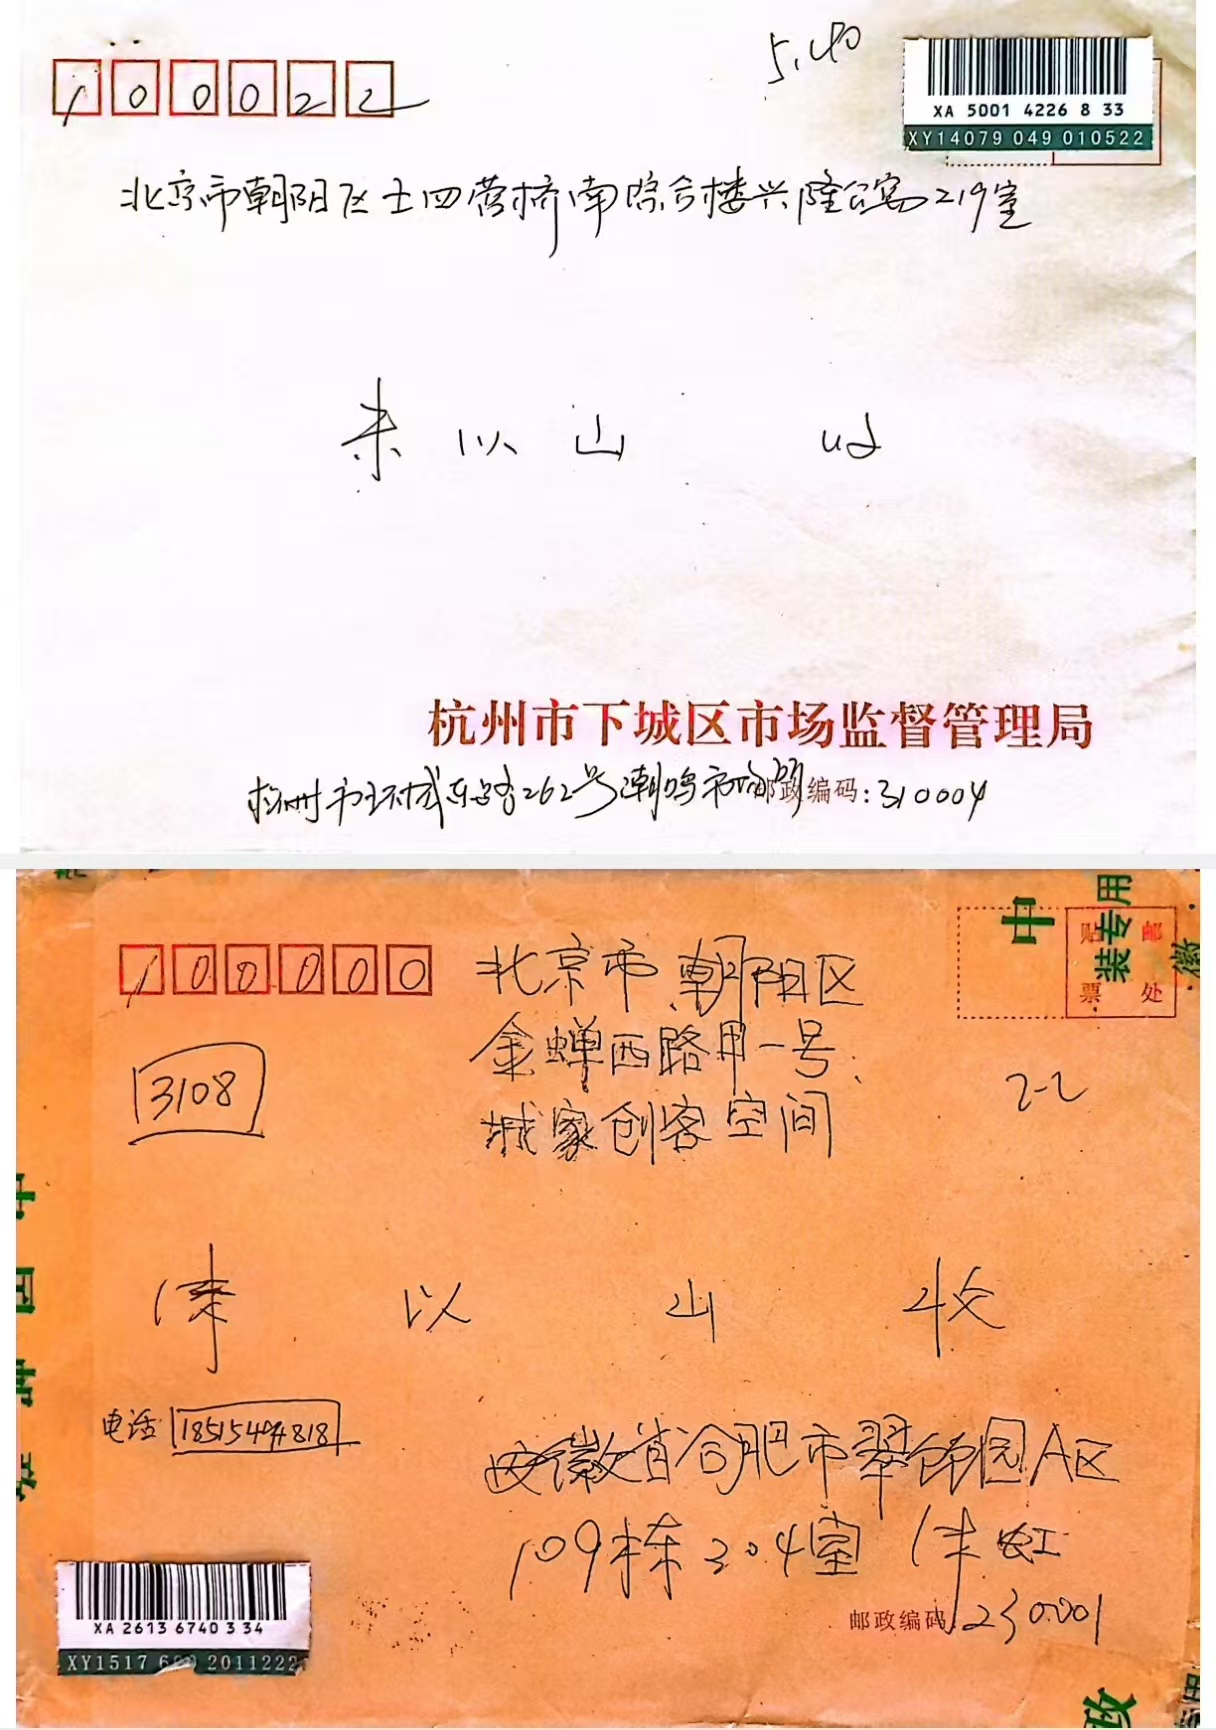 100022
5.40
XA 5001 4226 8 33
XY14079 049 010522
北京市朝阳区十四营桥南综合楼兴隆公寓219室
以山 收
杭州市下城区市场监督管理局
杭州市环城东路262号潮鸣市 邮政编码:310004
100000
北京市朝阳区
金蝉西路甲一号
城家创客空间
3108
2-2
中
装专用
贴 邮
票 处
徽
以 山 收
电话
安徽省合肥市翠 园A区
109栋304室 虹
邮政编码 230001
XA 2613 6740 3 34
XY1517 2011222
政